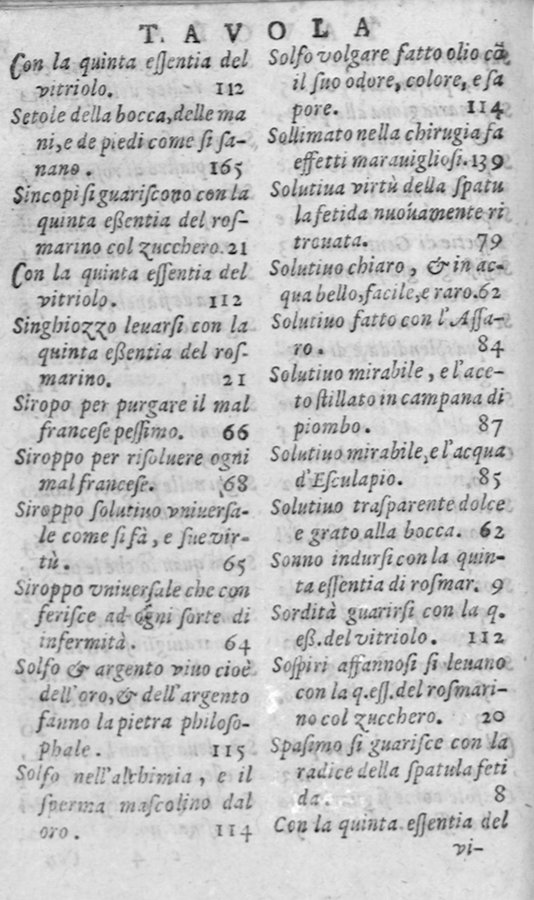 TAVOLA
Con la quinta eſſentia del
vitriolo. 112
Setole della bocca, delle ma
ni, e de piedi come ſi ſa-
nano. 165
Sincopi ſi guariſcono con la
quinta eßentia del roſ-
marino col zucchero. 21
Con la quinta eſſentia del
vitriolo. 112
Singhiozzo leuarſi con la
quinta eßentia del roſ-
marino. 21
Siropo per purgare il mal
franceſe peſſimo. 66
Siroppo per riſoluere ogni
mal franceſe. 68
Siroppo ſolutiuo vniuerſa-
le come ſi fà, e ſue vir-
tù. 65
Siroppo vniuerſale che con
feriſce ad ogni ſorte di
infermità. 64
Solfo & argento viuo cioè
dell'oro, & dell'argento
fanno la pietra philoſo-
phale. 115
Solfo nell'alchimia, e il
ſperma maſcolino dal
oro. 114
Solfo volgare fatto olio cō
il ſuo odore, colore, e ſa
pore. 114
Sollimato nella chirugia fa
effetti marauiglioſi. 139
Solutiua virtù della ſpatu
la fetida nuouamente ri
trouata. 79
Solutiuo chiaro, & in ac-
qua bello, facile, e raro. 62
Solutiuo fatto con l'Aſſa-
ro. 84
Solutiuo mirabile, e l'ace-
to ſtillato in campana di
piombo. 87
Solutiuo mirabile, e l'acqua
d'Eſculapio. 85
Solutiuo traſparente dolce
e grato alla bocca. 62
Sonno indurſi con la quin-
ta eſſentia di roſmar. 9
Sordità guarirſi con la q.
eß. del vitriolo. 112
Soſpiri affannoſi ſi leuano
con la q. eſſ. del roſmari-
no col zucchero. 20
Spaſimo ſi guariſce con la
radice della ſpatula feti
da. 8
Con la quinta eſſentia del
vi-